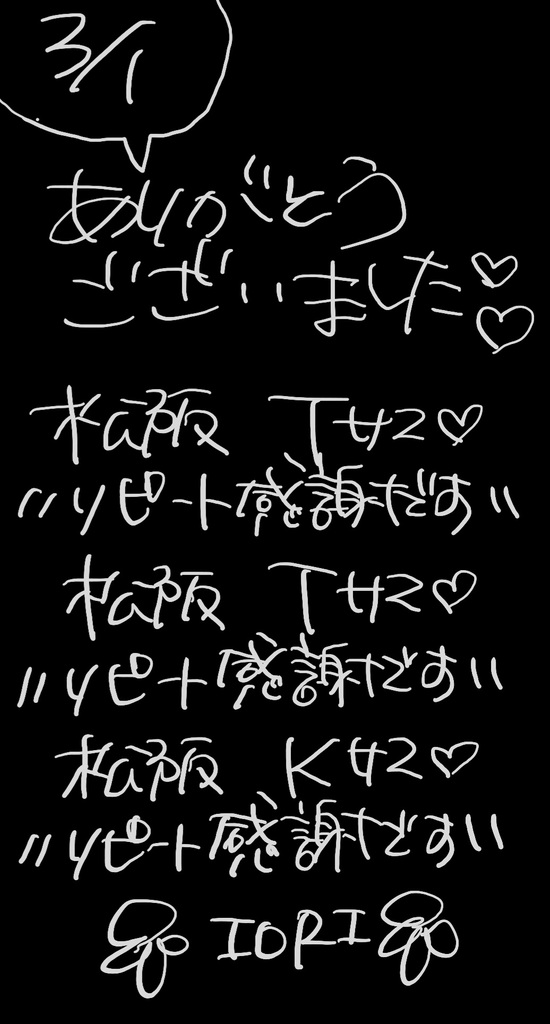 3/1
ありがとう
ございました♡♡
松阪 Tサン♡
"リピート感謝だす"
松阪 Tサン♡
"リピート感謝だす"
松阪 Kサン♡
"リピート感謝だす"
IORI